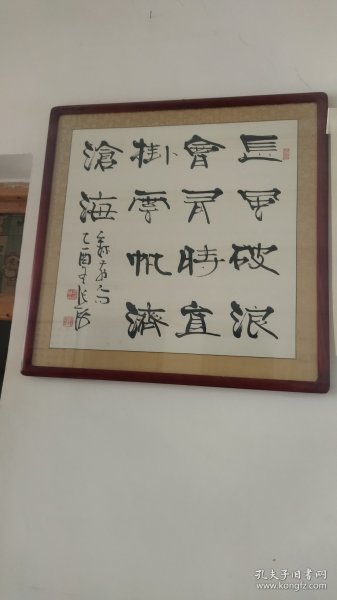 長風破浪
會有時直
掛雲帆濟
滄海
乙酉年
孔夫子旧书网
www.kongfz.com